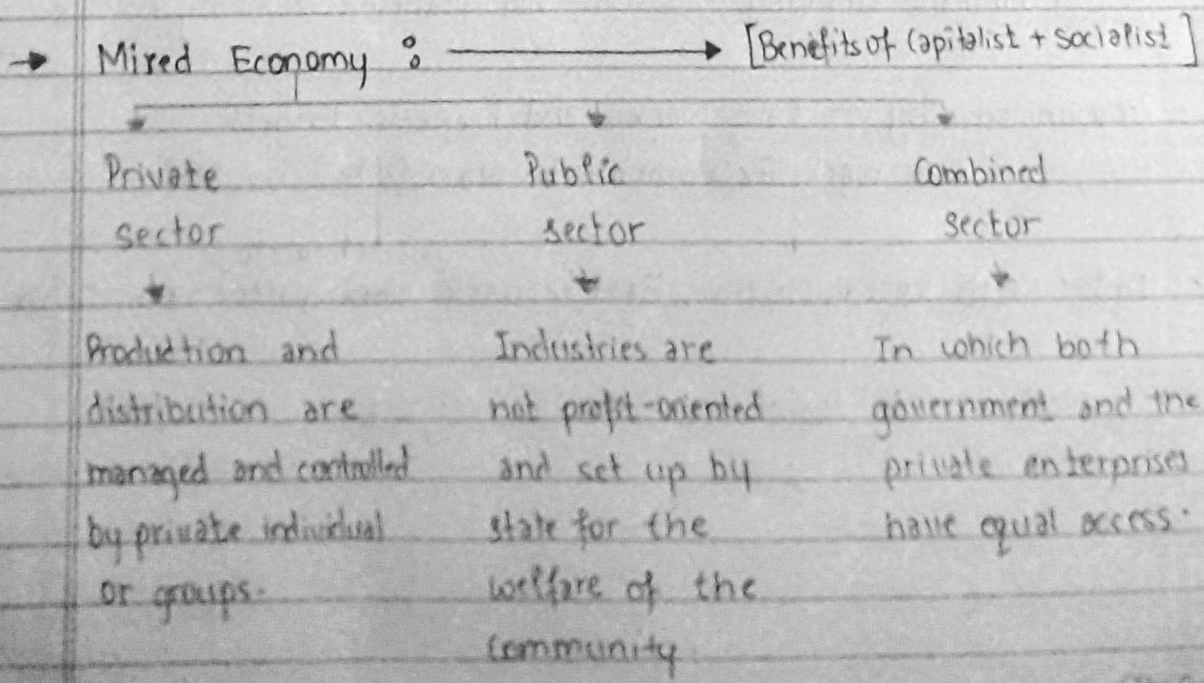 → Mixed Economy : → [Benefits of Capitalist + Socialist]
Private
sector
Production and
distribution are
managed and controlled
by private individual
or groups.
Public
sector
Industries are
not profit-oriented
and set up by
state for the
welfare of the
community
Combined
sector
In which both
government and the
private enterprises
have equal access.